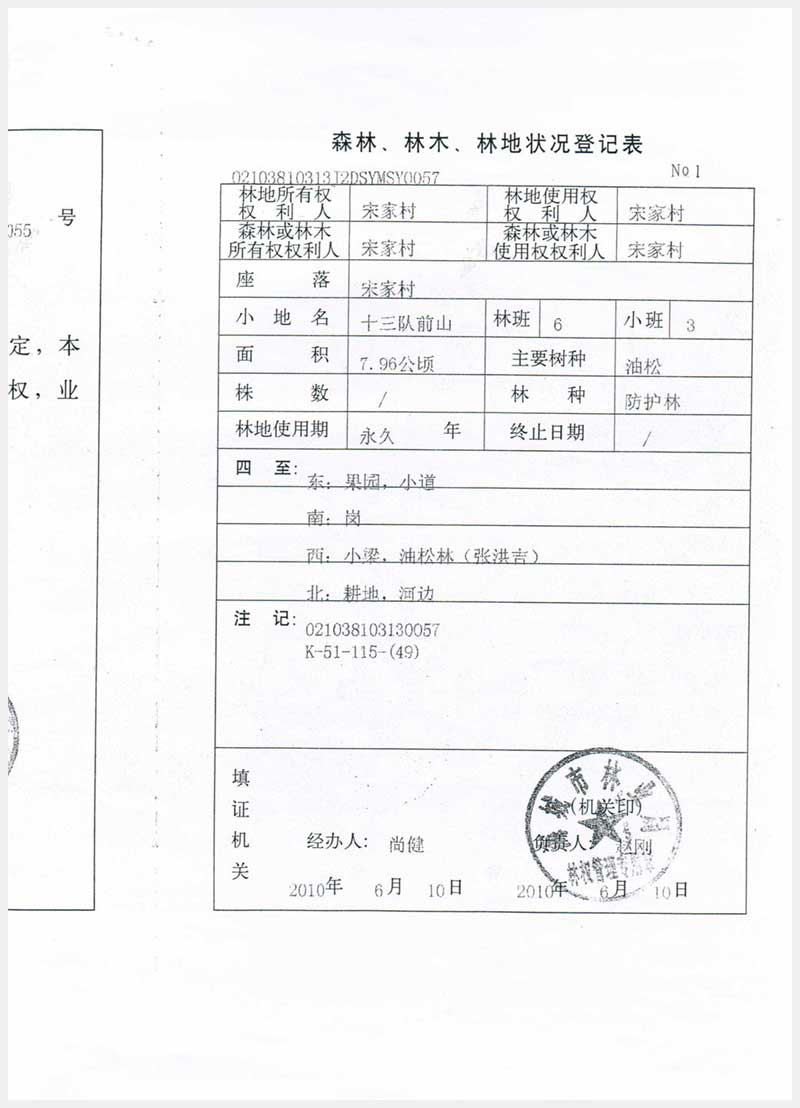 号
055
定，本
权，业
森林、林木、林地状况登记表
02103810313J2DSYMSY0057
No 1
林地所有权权利人 宋家村 林地使用权权利人 宋家村
森林或林木所有权权利人 宋家村 森林或林木使用权权利人 宋家村
座落 宋家村
小地名 十三队前山 林班 6 小班 3
面积 7.96公顷 主要树种 油松
株数 / 林种 防护林
林地使用期 永久 年 终止日期 /
四至：
东：果园，小道
南：岗
西：小梁，油松林（张洪吉）
北：耕地，河边
注记：
021038103130057
K-51-115-(49)
填证机关
(机关印)
经办人：尚健 负责人：赵刚
2010年 6月 10日 2010年 6月 10日
城市林业局
林权管理专用章